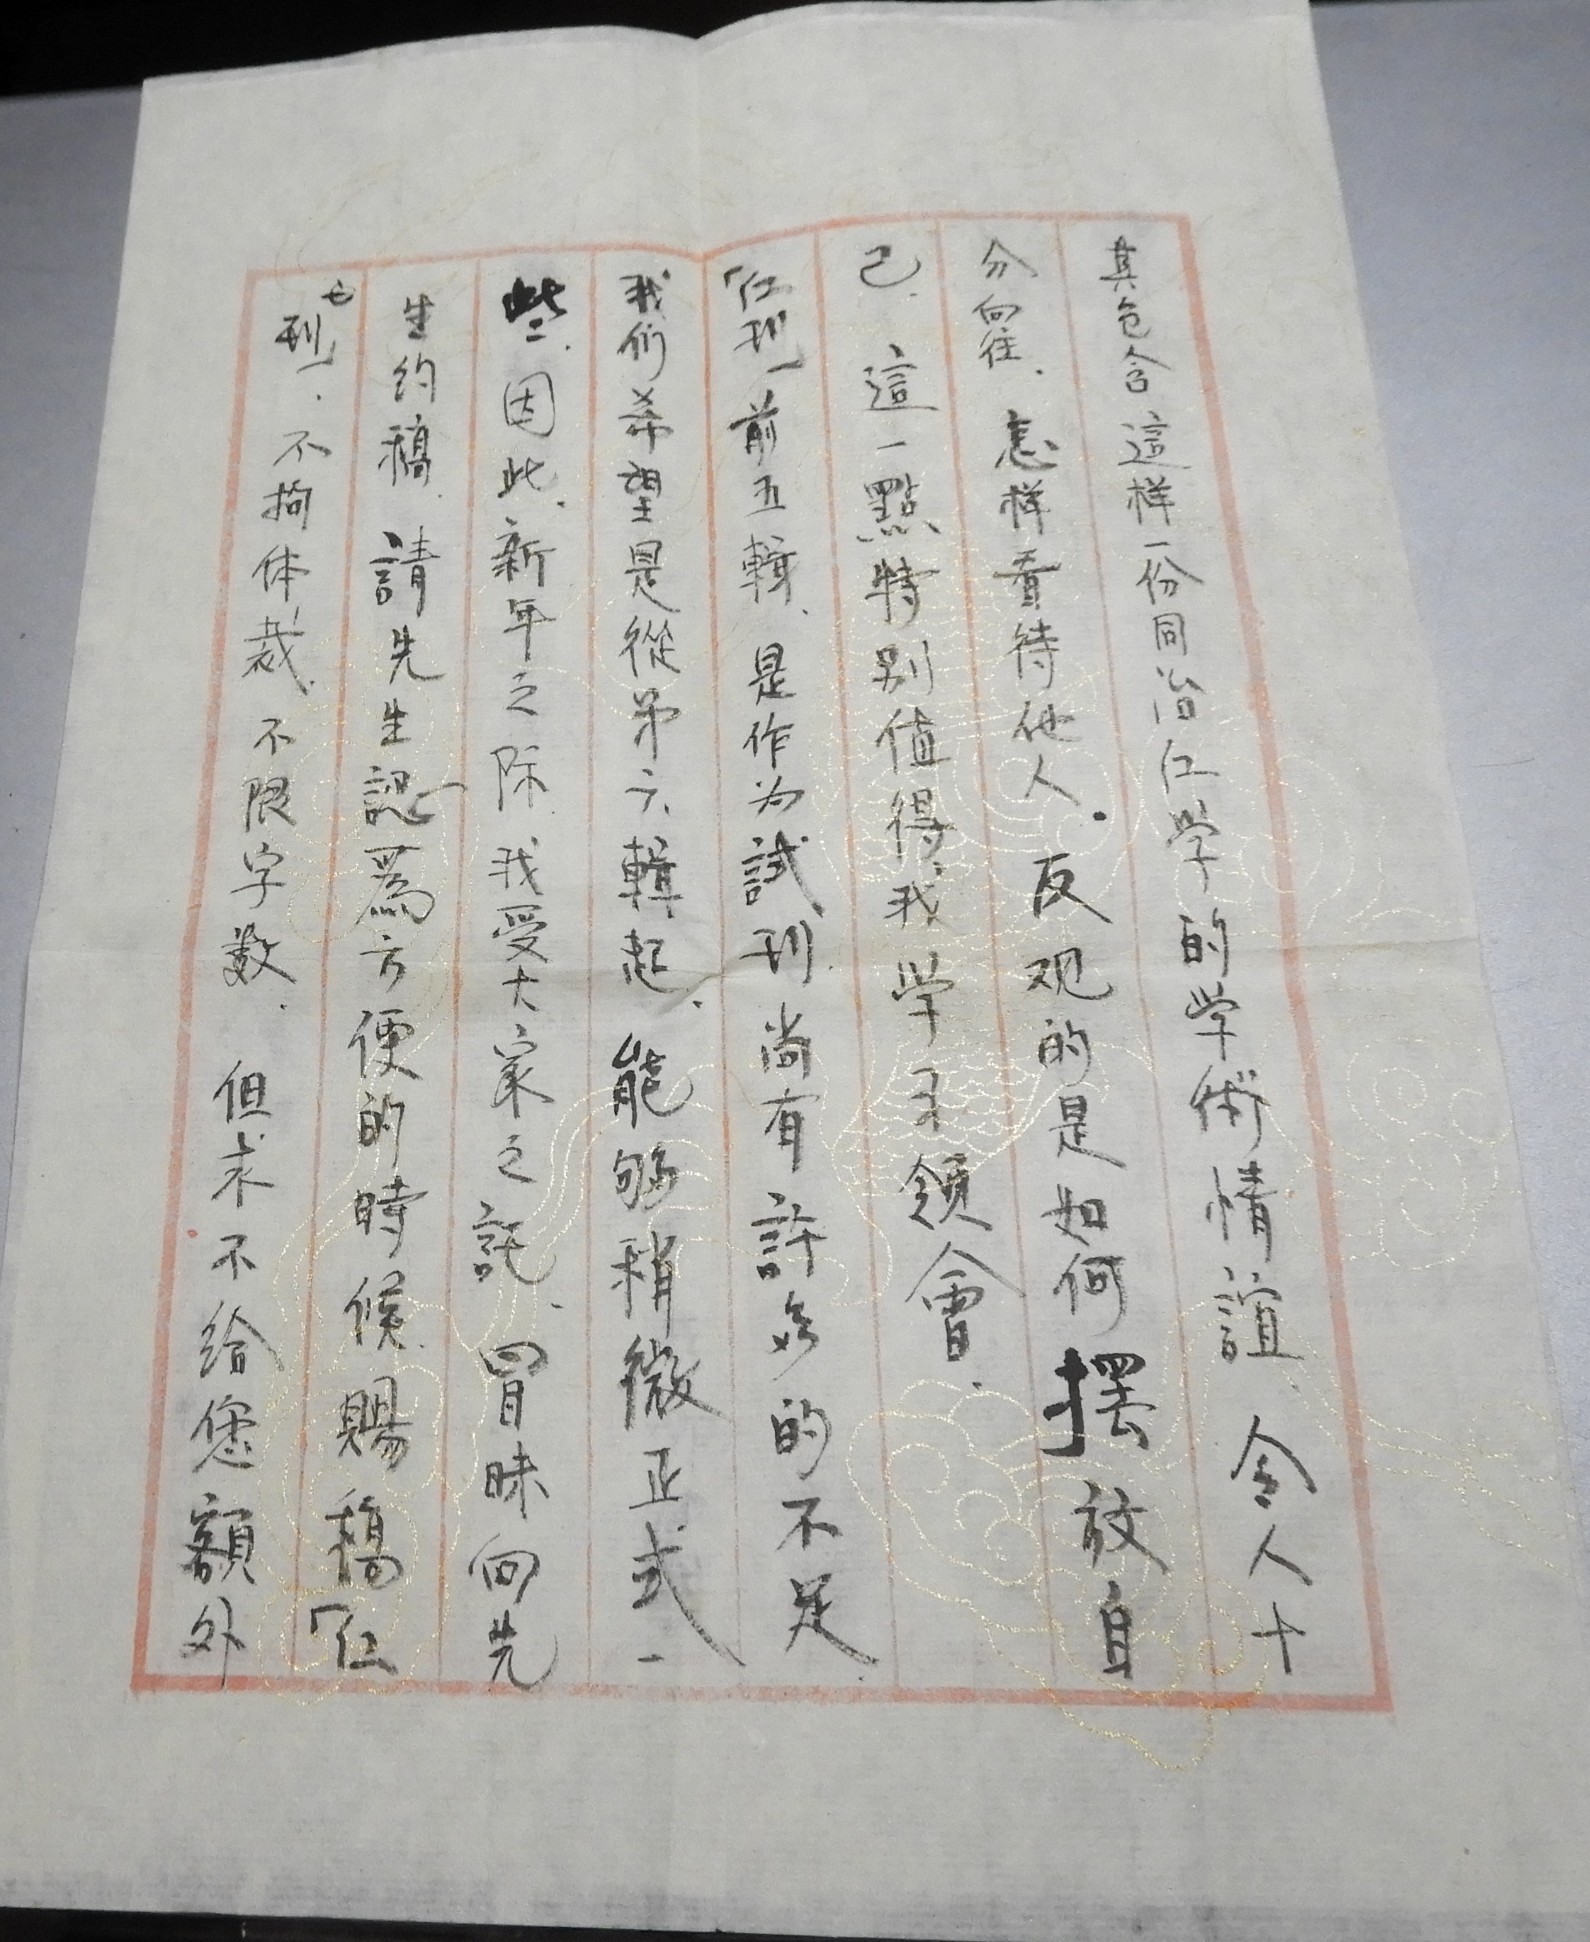 其包含這样一份同治红学的学術情誼、令人十
分向往、怎样看待他人、反观的是如何摆放自
己、這一點特别值得我学习領會、
「红刊」前五輯、是作为試刊尚有許多的不足、
我们希望是從第六輯起、能够稍微正式一
些、因此、新年之际、我受大家之託、冒昧向先
生约稿、請先生認爲方便的時候、賜稿「红
刊」、不拘体裁、不限字数、但求不给您額外